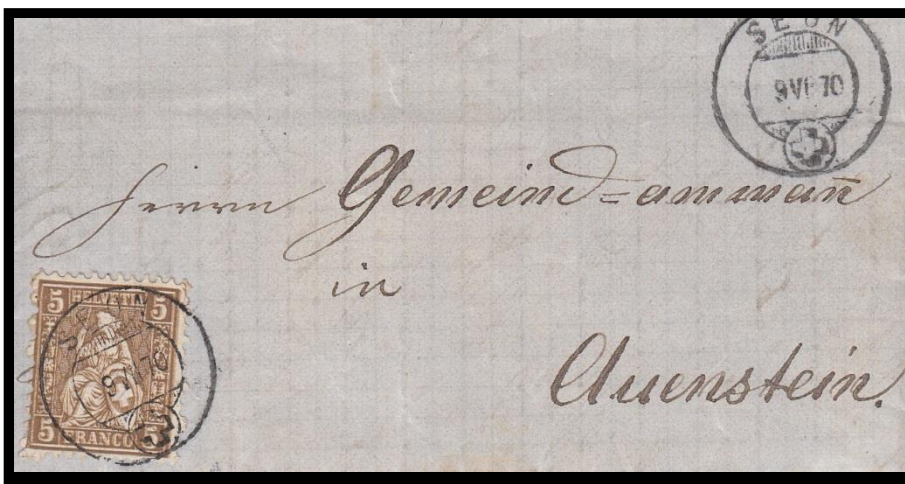 SEON
9 VI 70
Herrn Gemeind=ammañ
in
Auenstein.
5 HELVETIA 5
SEON
9 VI 70
5 FRANCO 5